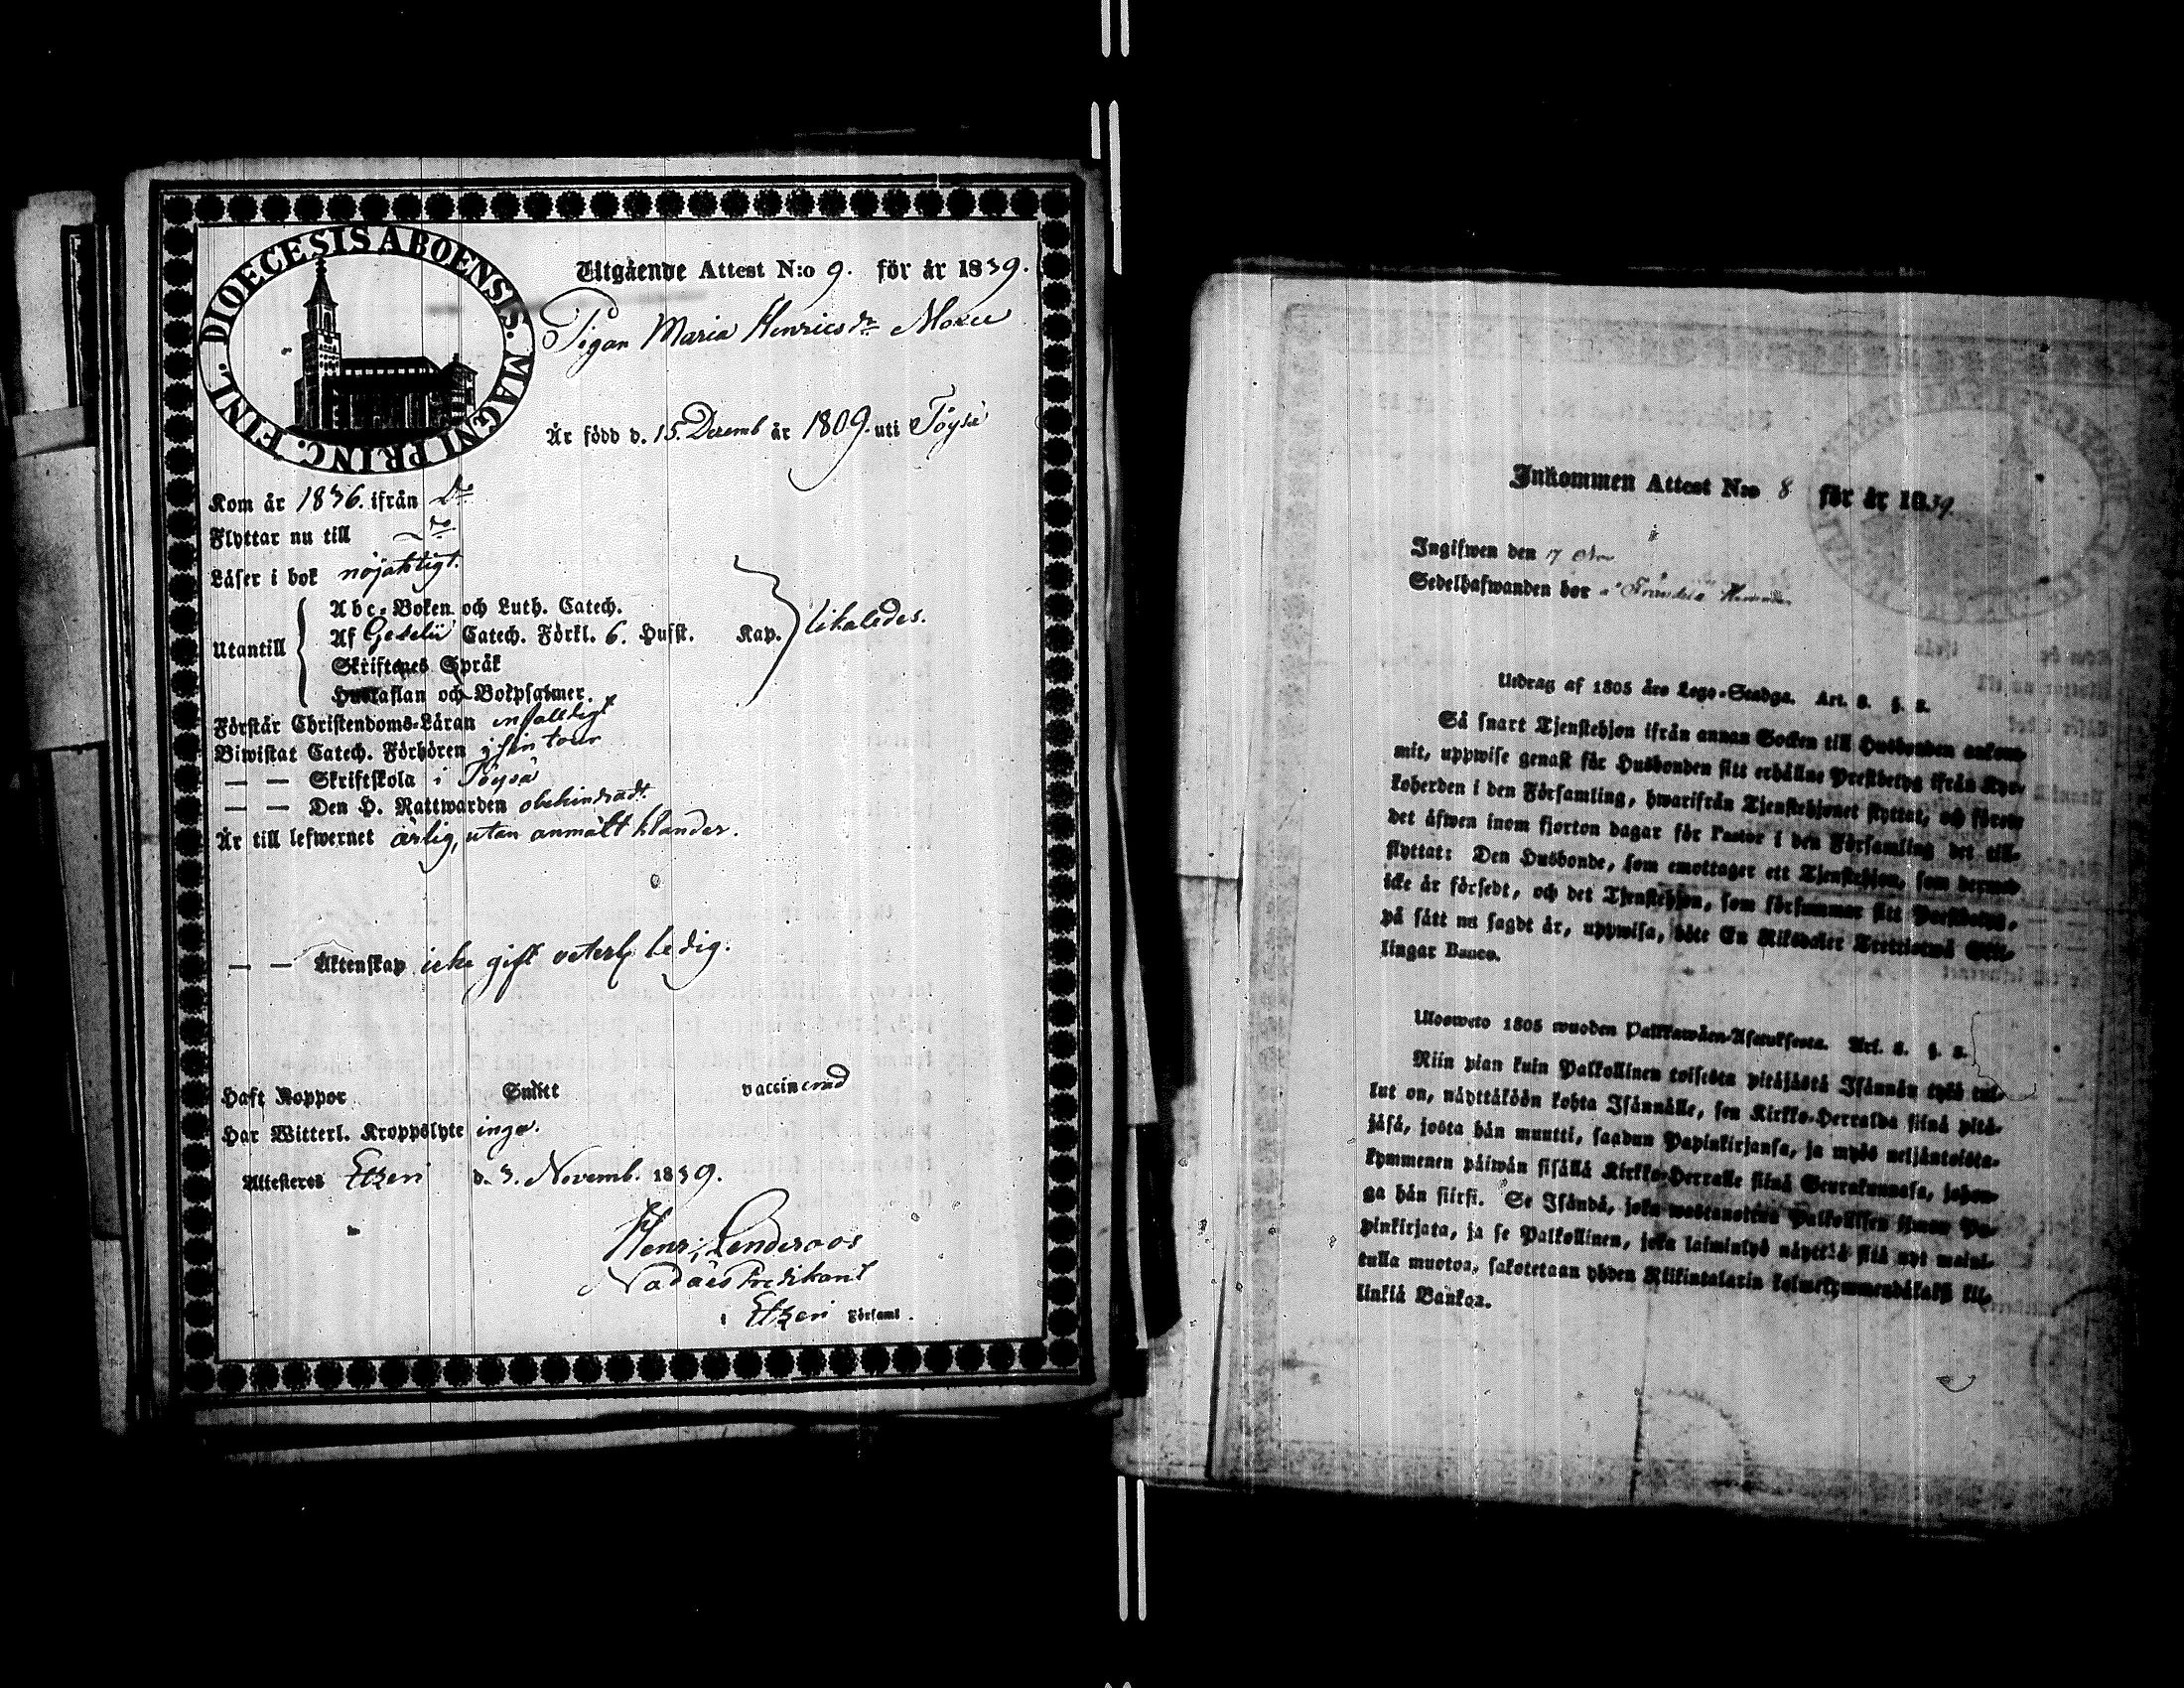 DIOECESIS ABOENSIS. MAGNI PRINC. FINL.
Utgående Attest N:o 9. för år 1839.
Pigan Maria Henricsdr
Är född d. 15. Decemb år 1809. uti Töysä
Kom år 1836. ifrån Do
Flyttar nu till do
Läser i bok nöjaktigt.
Utantill
Abc-Boken och Luth. Catech.
Af Gezelii Catech. Förkl. 6. Hufst. Kap. likaledes.
Skriftenes Språk
Hustaflan och Botpsalmer.
Förstår Christendoms-Läran enfaldigt
Biwistat Catech. Förhören i sin tour
— — Skriftskola i Töysä
— — Den H. Nattwarden obehindradt.
Är till lefwernet ärlig, utan anmält klander.
— — Äktenskap icke gift veterl. ledig.
Haft Koppor Smitt vaccinerad
Har Witterl. Kroppslyte inga.
Attesteres Etzeri d. 3. Novemb. 1839.
Henr. Lenderoos
Nådårs Predikant
i Etzeri Församl.
Inkommen Attest N:o 8 för år 1839.
Ingifwen den 17
Sedelhafwanden bor
Utdrag af 1805 års Lego-Stadga. Art. 2. §. 2.
Så snart Tjenstehjon ifrån annan Socken till Husbonden ankom-
mit, uppwise genast för Husbonden sitt erhållne Prestbetyg ifrån Kyr-
koherden i den Församling, hwarifrån Tjenstehjonet flyttat, och förete
det äfwen inom fjorton dagar för Pastor i den Församling det till-
flyttat: Den Husbonde, som emottager ett Tjenstehjon, som dermed
icke är försedt, och det Tjenstehjon, som försummar sitt Prestbetyg,
på sätt nu sagdt är, uppwisa, böte En Riksdaler Trettiotwå Skil-
lingar Banco.
Ulosweto 1805 wuoden Palkkawäen-Asetuksesta. Art. 2. §. 2.
Niin pian kuin Palkollinen toisesta pitäjästä Isännän tykö tul-
lut on, näyttäköön kohta Isännälle, sen Kirkko-Herralda siinä pitä-
jäsä, josta hän muutti, saadun Papinkirjansa, ja myös neljäntoista-
kymmenen päiwän sisällä Kirkko-Herralle siinä Seurakunnasa, johon-
ga hän siirsi. Se Isändä, joka wastanottaa Palkollisen ilman Pa-
pinkirjata, ja se Palkollinen, joka laiminlyö näyttää sitä nyt maini-
tulla muotoa, sakotetaan yhden Riikintalarin kolmekymmendäkaksi kil-
linkiä Bankoa.